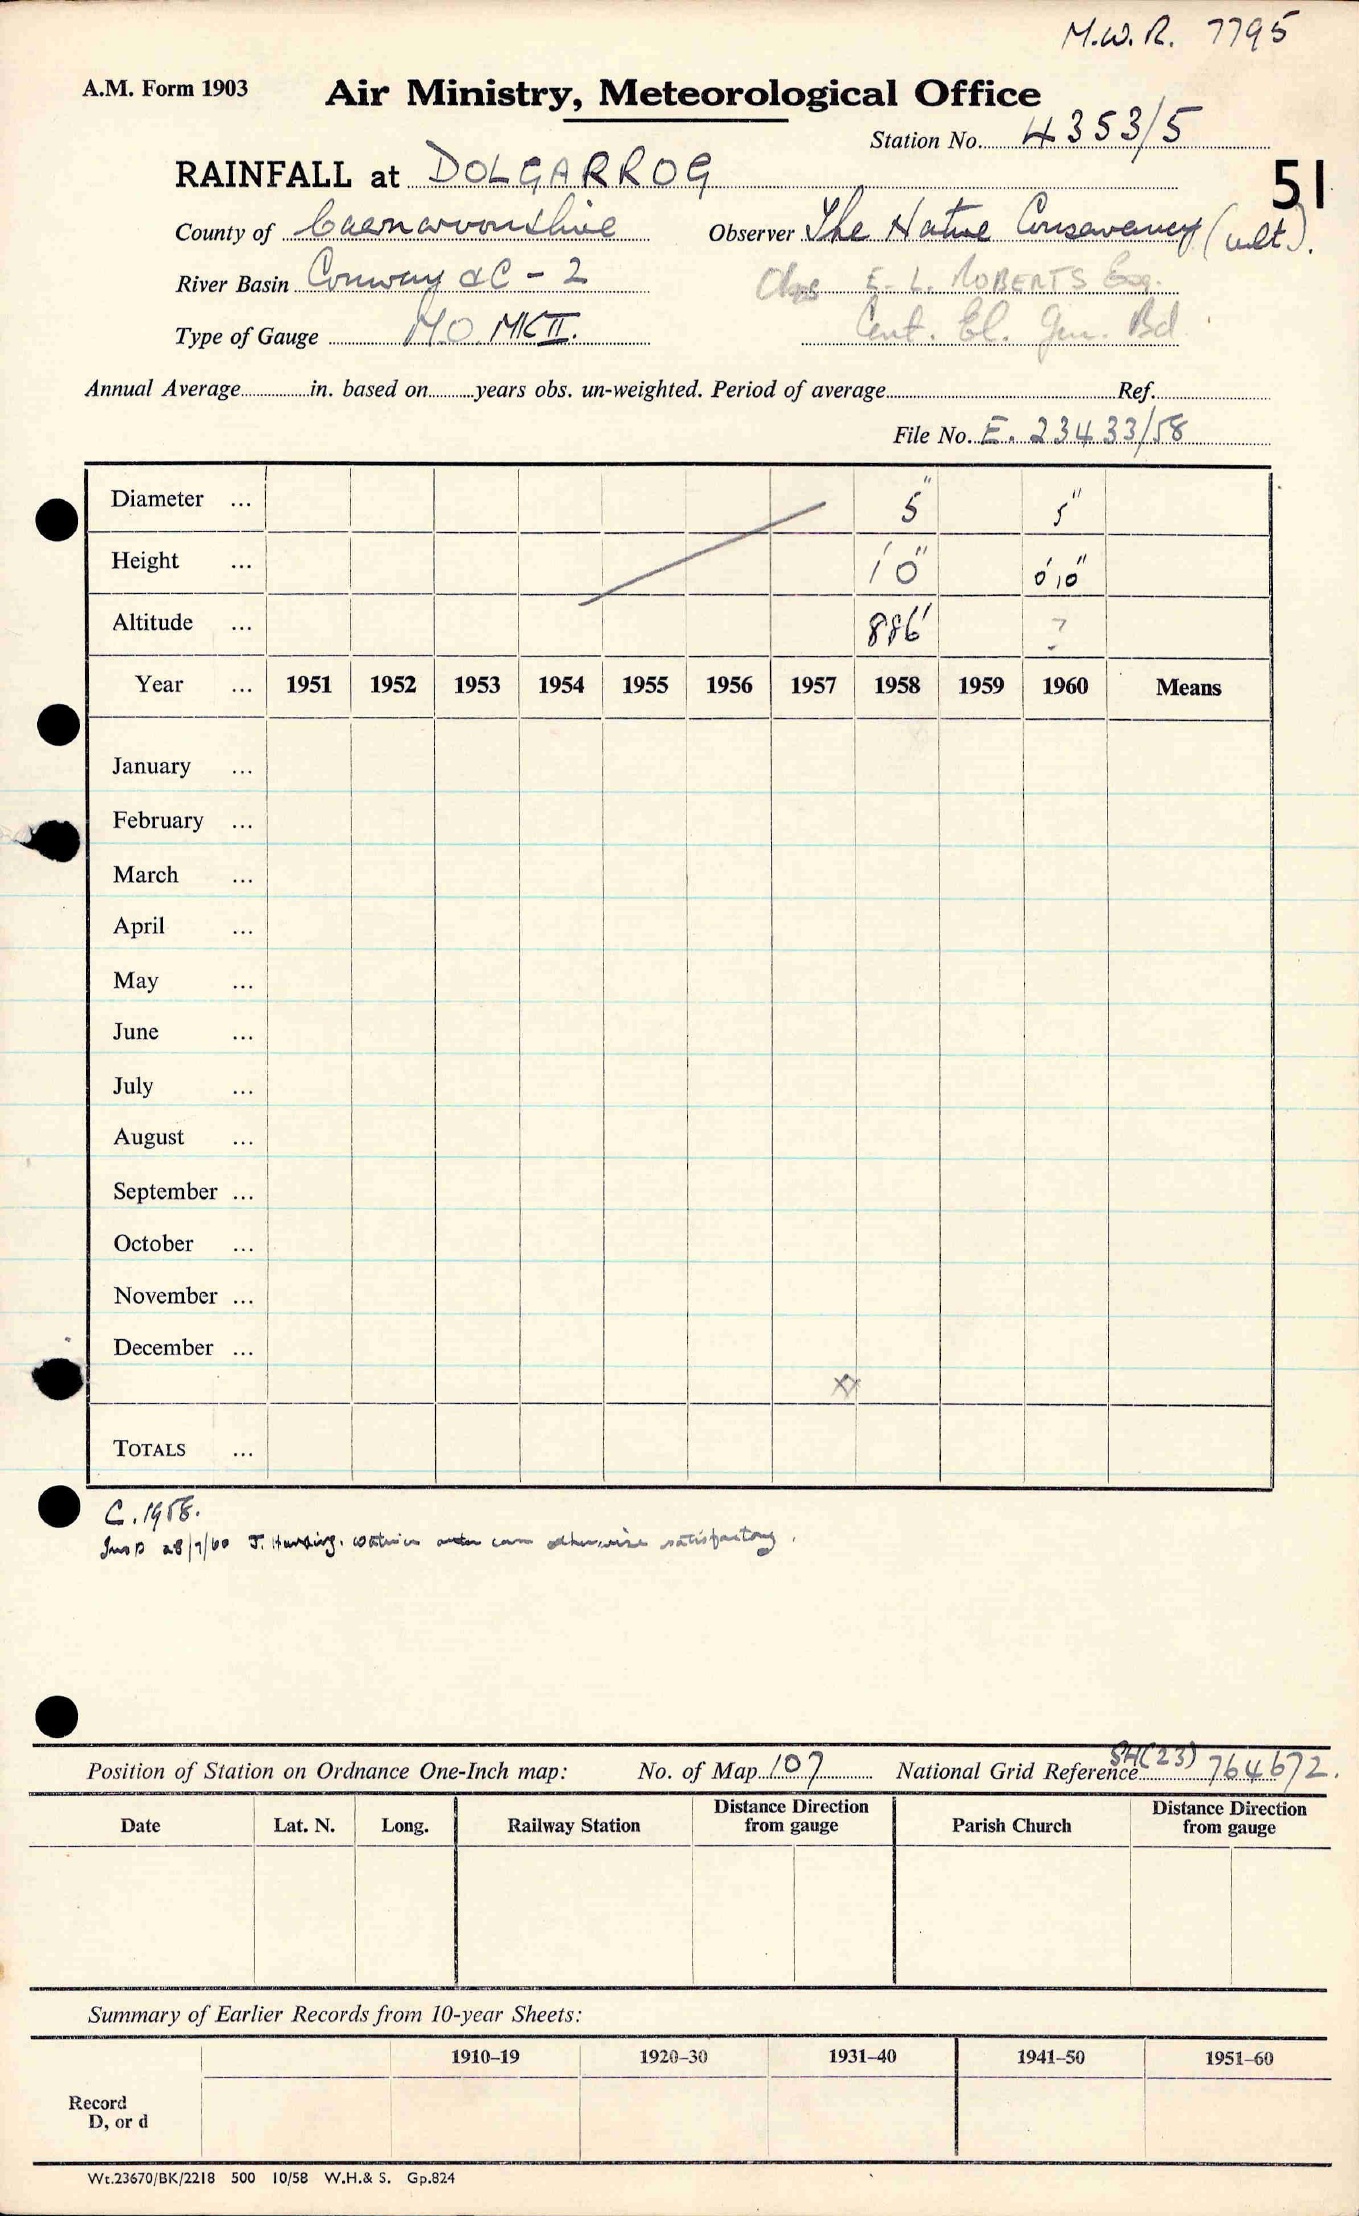 M.W.R. 7795
A.M. Form 1903
Air Ministry, Meteorological Office
Station No. 4353/5
RAINFALL at DOLGARROG
51
County of Caernarvonshire Observer The Nature Conservancy (ult).
River Basin Conway &C - 2 Obs E. L. ROBERTS Esq.
Type of Gauge M.O. MK II. Cent. El. Gen. Bd
Annual Average in. based on years obs. un-weighted. Period of average Ref.
File No. E. 23433/58
Diameter ... 5" 5"
Height ... 1' 0" 0' 10"
Altitude ... 886' ?
Year ... 1951 1952 1953 1954 1955 1956 1957 1958 1959 1960 Means
January ...
February ...
March ...
April ...
May ...
June ...
July ...
August ...
September ...
October ...
November ...
December ...
XX
TOTALS ...
C. 1958.
Insp 28/7/60 J. Harding. otherwise satisfactory.
Position of Station on Ordnance One-Inch map: No. of Map 107 National Grid Reference SH(23) 764672.
Date Lat. N. Long. Railway Station Distance Direction from gauge Parish Church Distance Direction from gauge
Summary of Earlier Records from 10-year Sheets:
1910–19 1920–30 1931–40 1941–50 1951–60
Record
D, or d
Wt.23670/BK/2218 500 10/58 W.H.& S. Gp.824